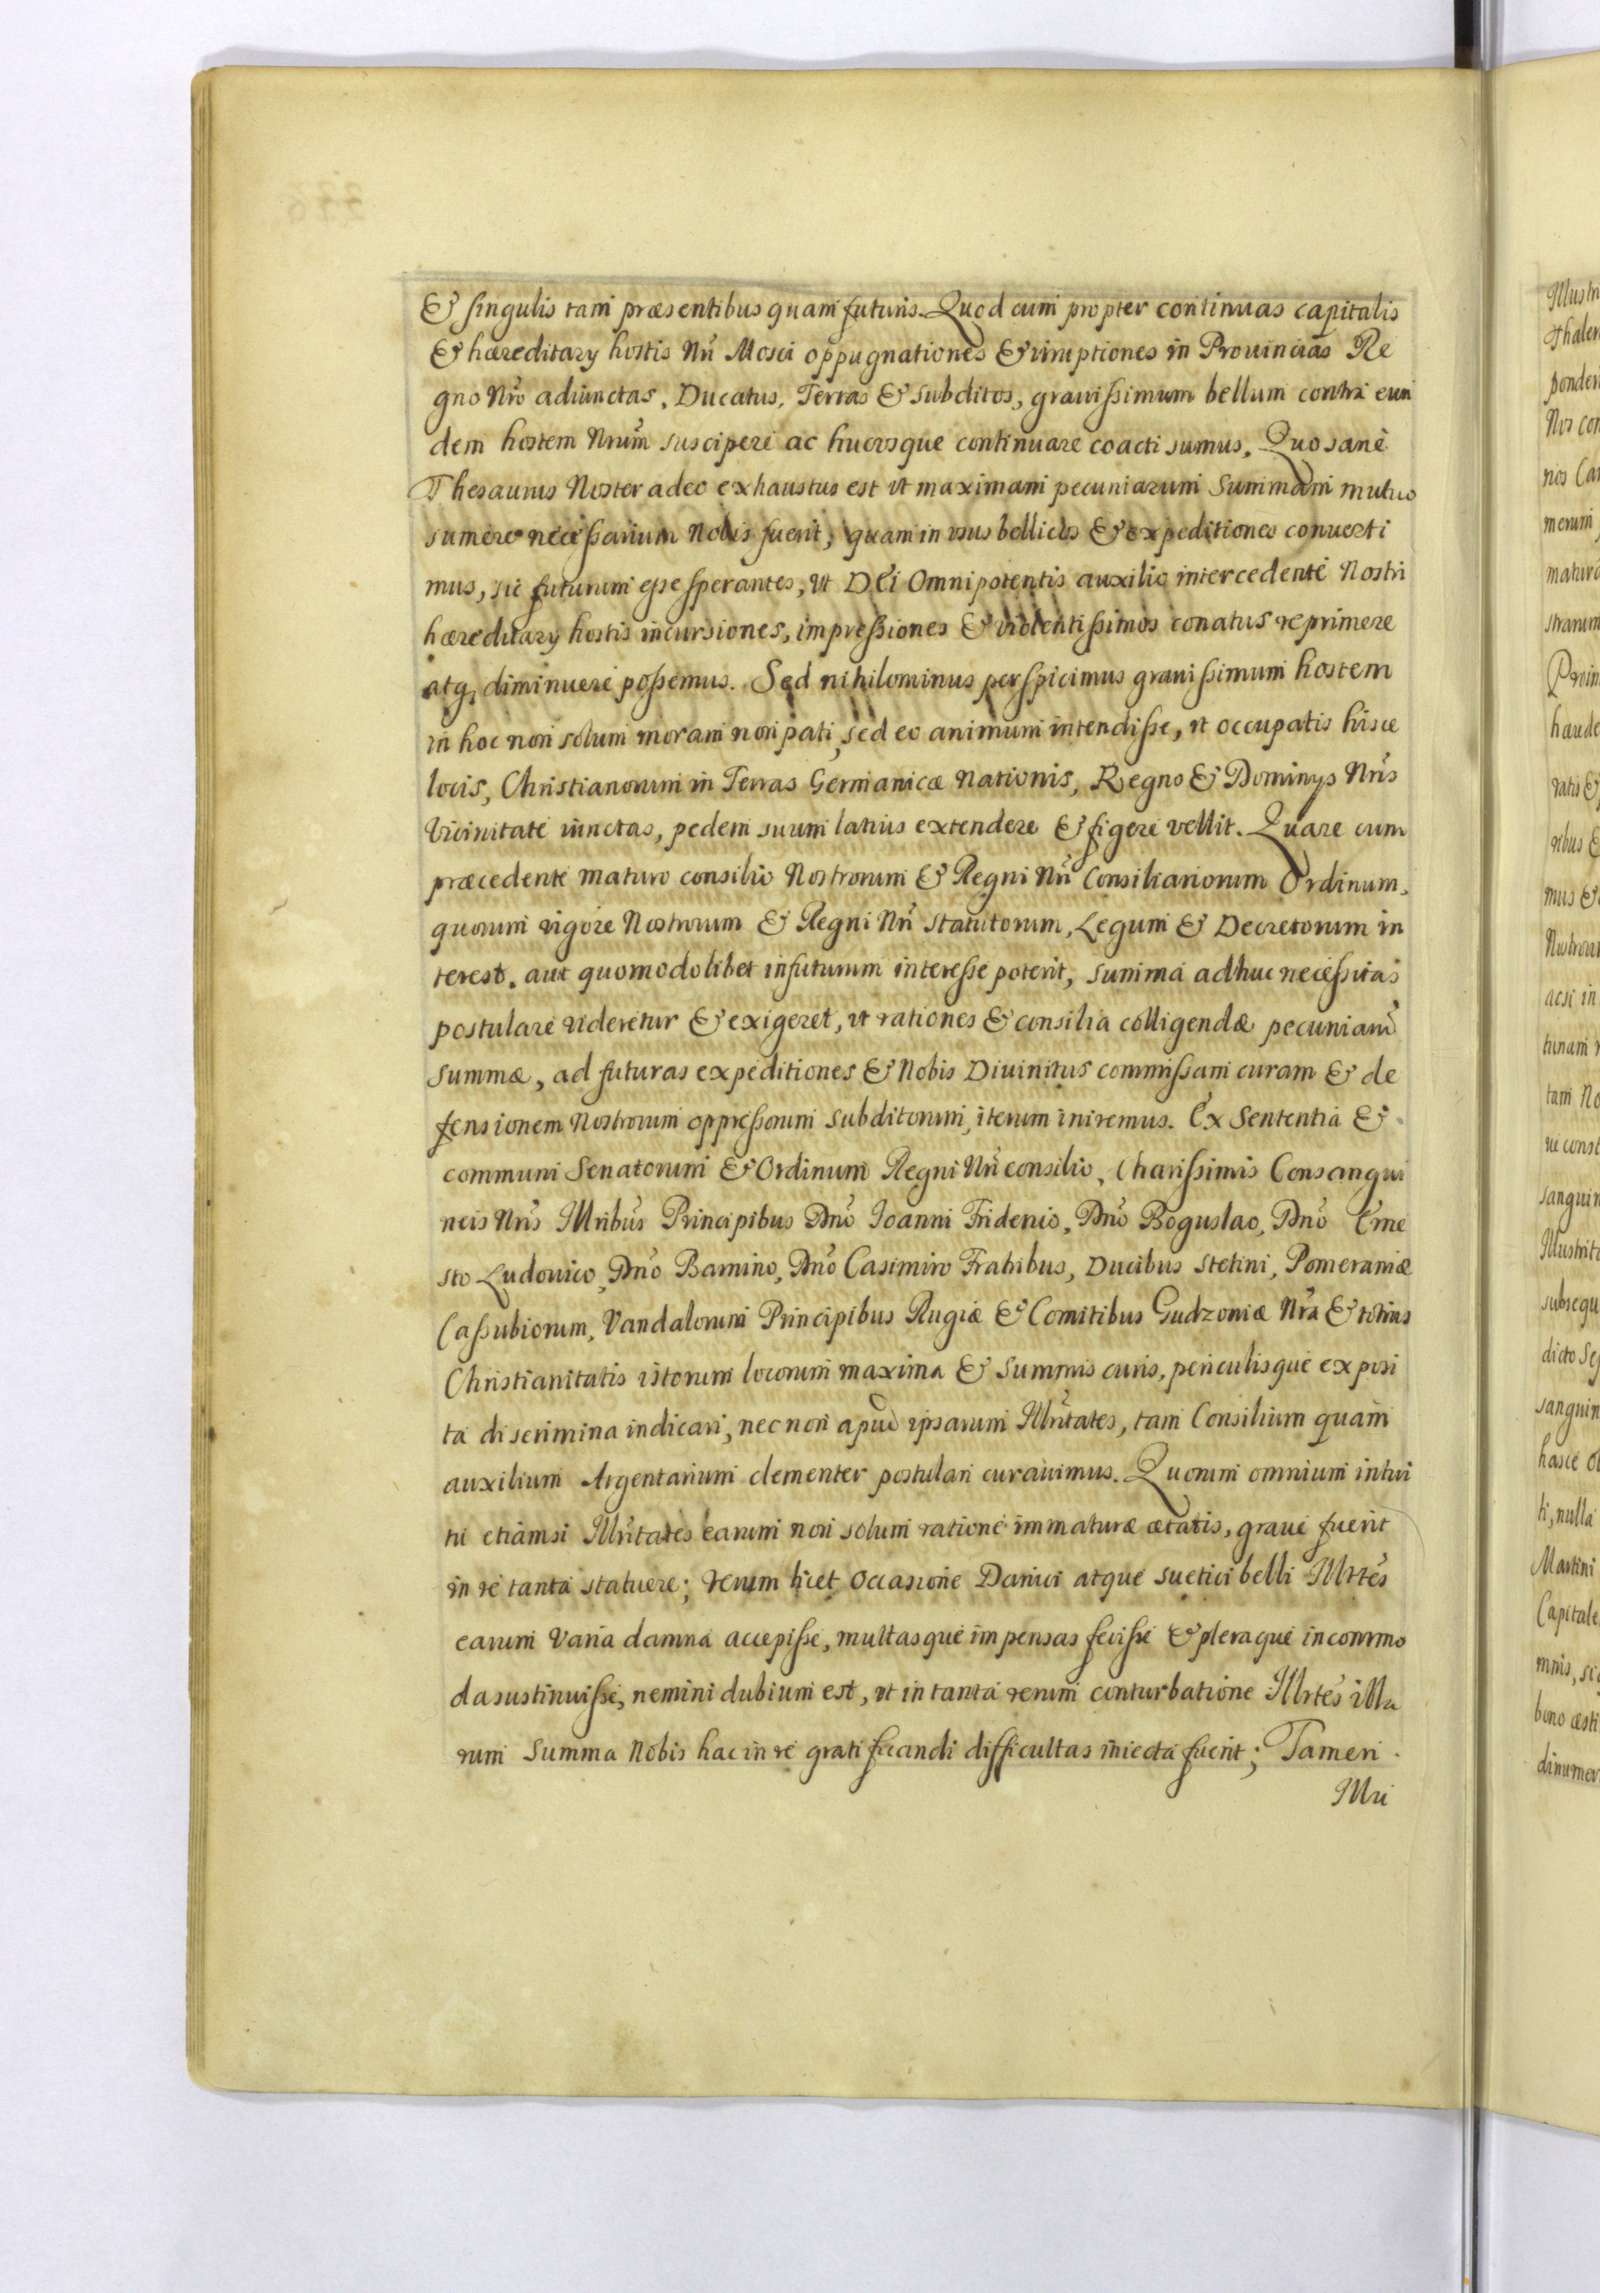 & singulis tam præsentibus quam futuris. Quod cum propter continuas capitalis
& hæreditarÿ hostis Nri Mosci oppugnationes & irruptiones in Prouincias Re
gno Nro adiunctas, Ducatus, Terras & subditos, grauissimum bellum contra eun
dem hostem Nrum suscipere ac hucusque continuare coacti sumus. Quo sane
Thesaurus Noster adeo exhaustus est vt maximam pecuniarum summam mutuo
sumere necessarium Nobis fuerit, quam in vsus bellicos & expeditiones conuerti
mus, sic futurum esse sperantes, vt Dei Omnipotentis auxilio intercedente Nostri
hæreditarÿ hostis incursiones, impressiones & violentissimos conatus reprimere
atq, diminuere possemus. Sed nihilominus perspicimus grauissimum hostem
in hoc non solum moram non pati, sed eo animum intendisse, vt occupatis hisce
locis, Christianorum in Terras Germanicæ Nationis, Regno & Dominÿs Nris
Vicinitate iunctas, pedem suum latius extendere & figere vellit. Quare cum
præcedente maturo consilio Nostrorum & Regni Nri Consiliariorum Ordinum,
quorum vigore Nostrorum & Regni Nri statutorum, Legum & Decretorum in
terest, aut quomodolibet in futurum interesse poterit, summa adhuc necessitas
postulare videretur & exigeret, vt rationes & consilia colligendæ pecuniarum
summæ, ad futuras expeditiones & Nobis Diuinitus commissam curam & de
fensionem Nostrorum oppressorum subditorum, iterum iniremus. Ex Sententia &
communi Senatorum & Ordinum Regni Nri consilio, Charissimis Consangui
neis Nris Illribus Principibus Dno Ioanni Friderico, Dno Boguslao, Dno Erne
sto Ludouico, Dno Barnino, Dno Casimiro Fratribus, Ducibus Stetini, Pomeraniæ
Cassubiorum, Vandalorum Principibus Rugiæ & Comitibus Gudzoniæ Nra & totius
Christianitatis istorum locorum maxima & summis curis, periculisque exposi
ta discrimina indicari, nec non apud ipsarum Illritates, tam Consilium quam
auxilium Argentarium clementer postulari curauimus. Quorum omnium intui
tu etiamsi Illritates earum non solum ratione immaturæ ætatis, graue fuerit
in re tanta statuere; verum licet occasione Danici atque suetici belli Illrtes
earum varia damna accepisse, multasque impensas fecisse & pleraque incommo
da sustinuisse, nemini dubium est, vt in tanta rerum conturbatione Illrtes illa
rum summa Nobis hac in re gratificandi difficultas iniecta fuerit; Tamen
Illri